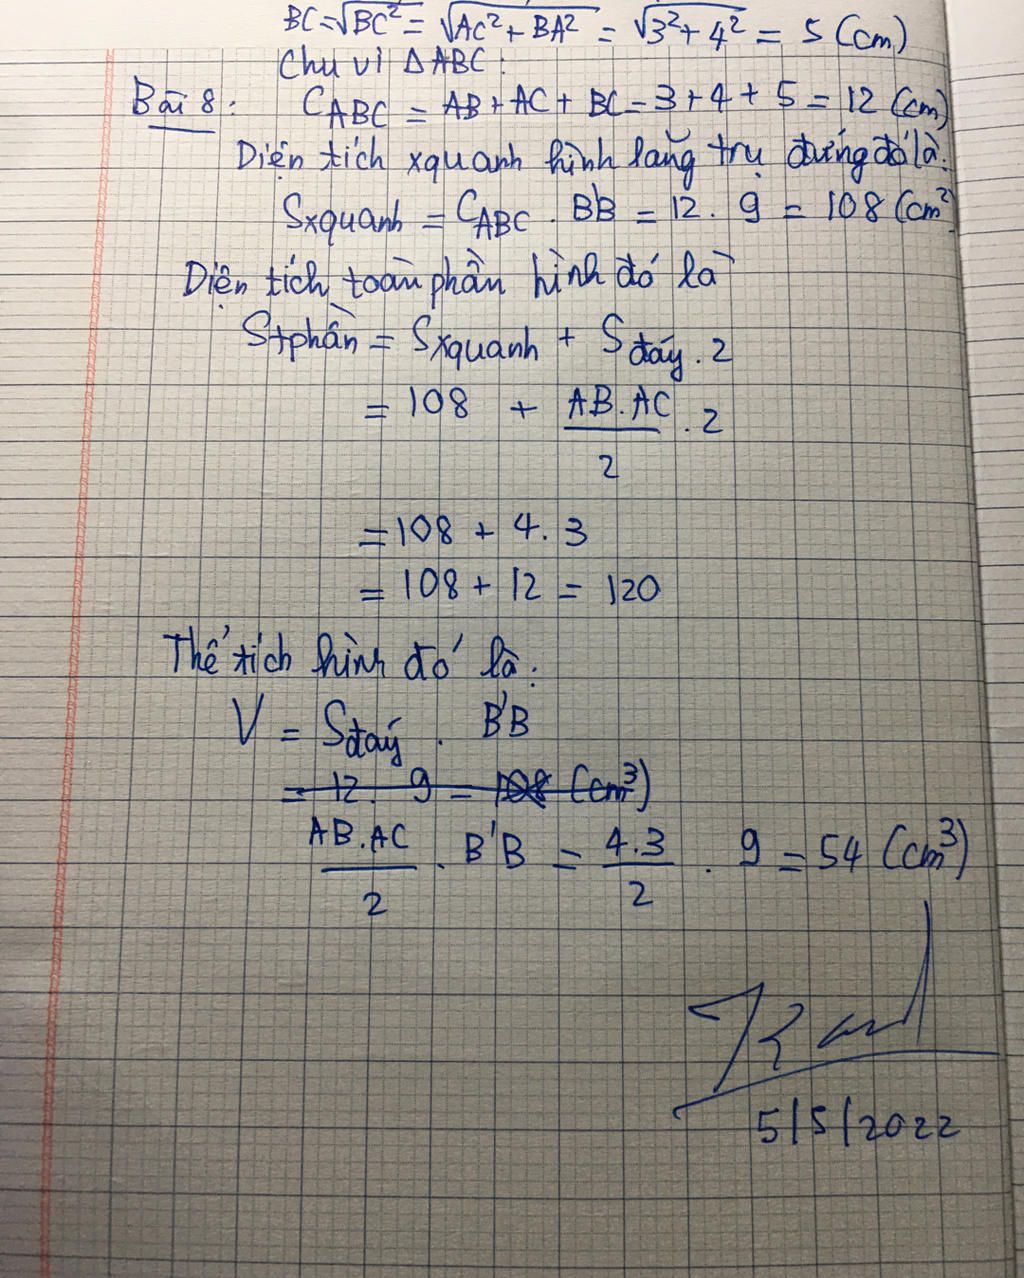 BC = √BC² = √AC² + BA² = √3² + 4² = 5 (cm)
Chu vi ΔABC:
Bài 8: CABC = AB + AC + BC = 3 + 4 + 5 = 12 (cm)
Diện tích xquanh hình lăng trụ đứng đó là:
Sxquanh = CABC . B'B = 12 . 9 = 108 (cm²)
Diện tích toàn phần hình đó là
Stphần = Sxquanh + Sđáy . 2
= 108 + AB.AC/2 . 2
= 108 + 4.3
= 108 + 12 = 120
Thể tích hình đó là:
V = Sđáy . B'B
= 12 . 9 = 108 (cm³)
AB.AC/2 . B'B = 4.3/2 . 9 = 54 (cm³)
5/5/2022